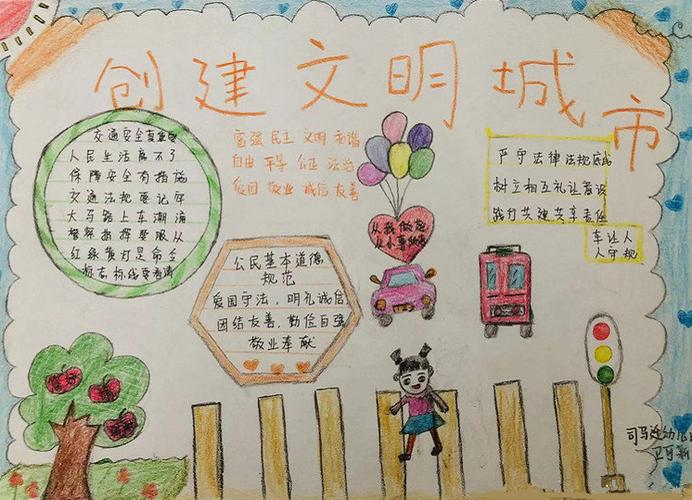 创建文明城市
交通安全真重要
人民生活离不了
保障安全有措施
交通法规要记牢
大马路上车潮涌
警察指挥要服从
红绿黄灯是命令
标志标线要看清
富强 民主 文明 和谐
自由 平等 公正 法治
爱国 敬业 诚信 友善
从我做起
从小事做起
严守法律法规底线
树立相互礼让意识
践行共建共享责任
车让人
人守规
公民基本道德
规范
爱国守法，明礼诚信
团结友善，勤俭自强
敬业奉献
司马